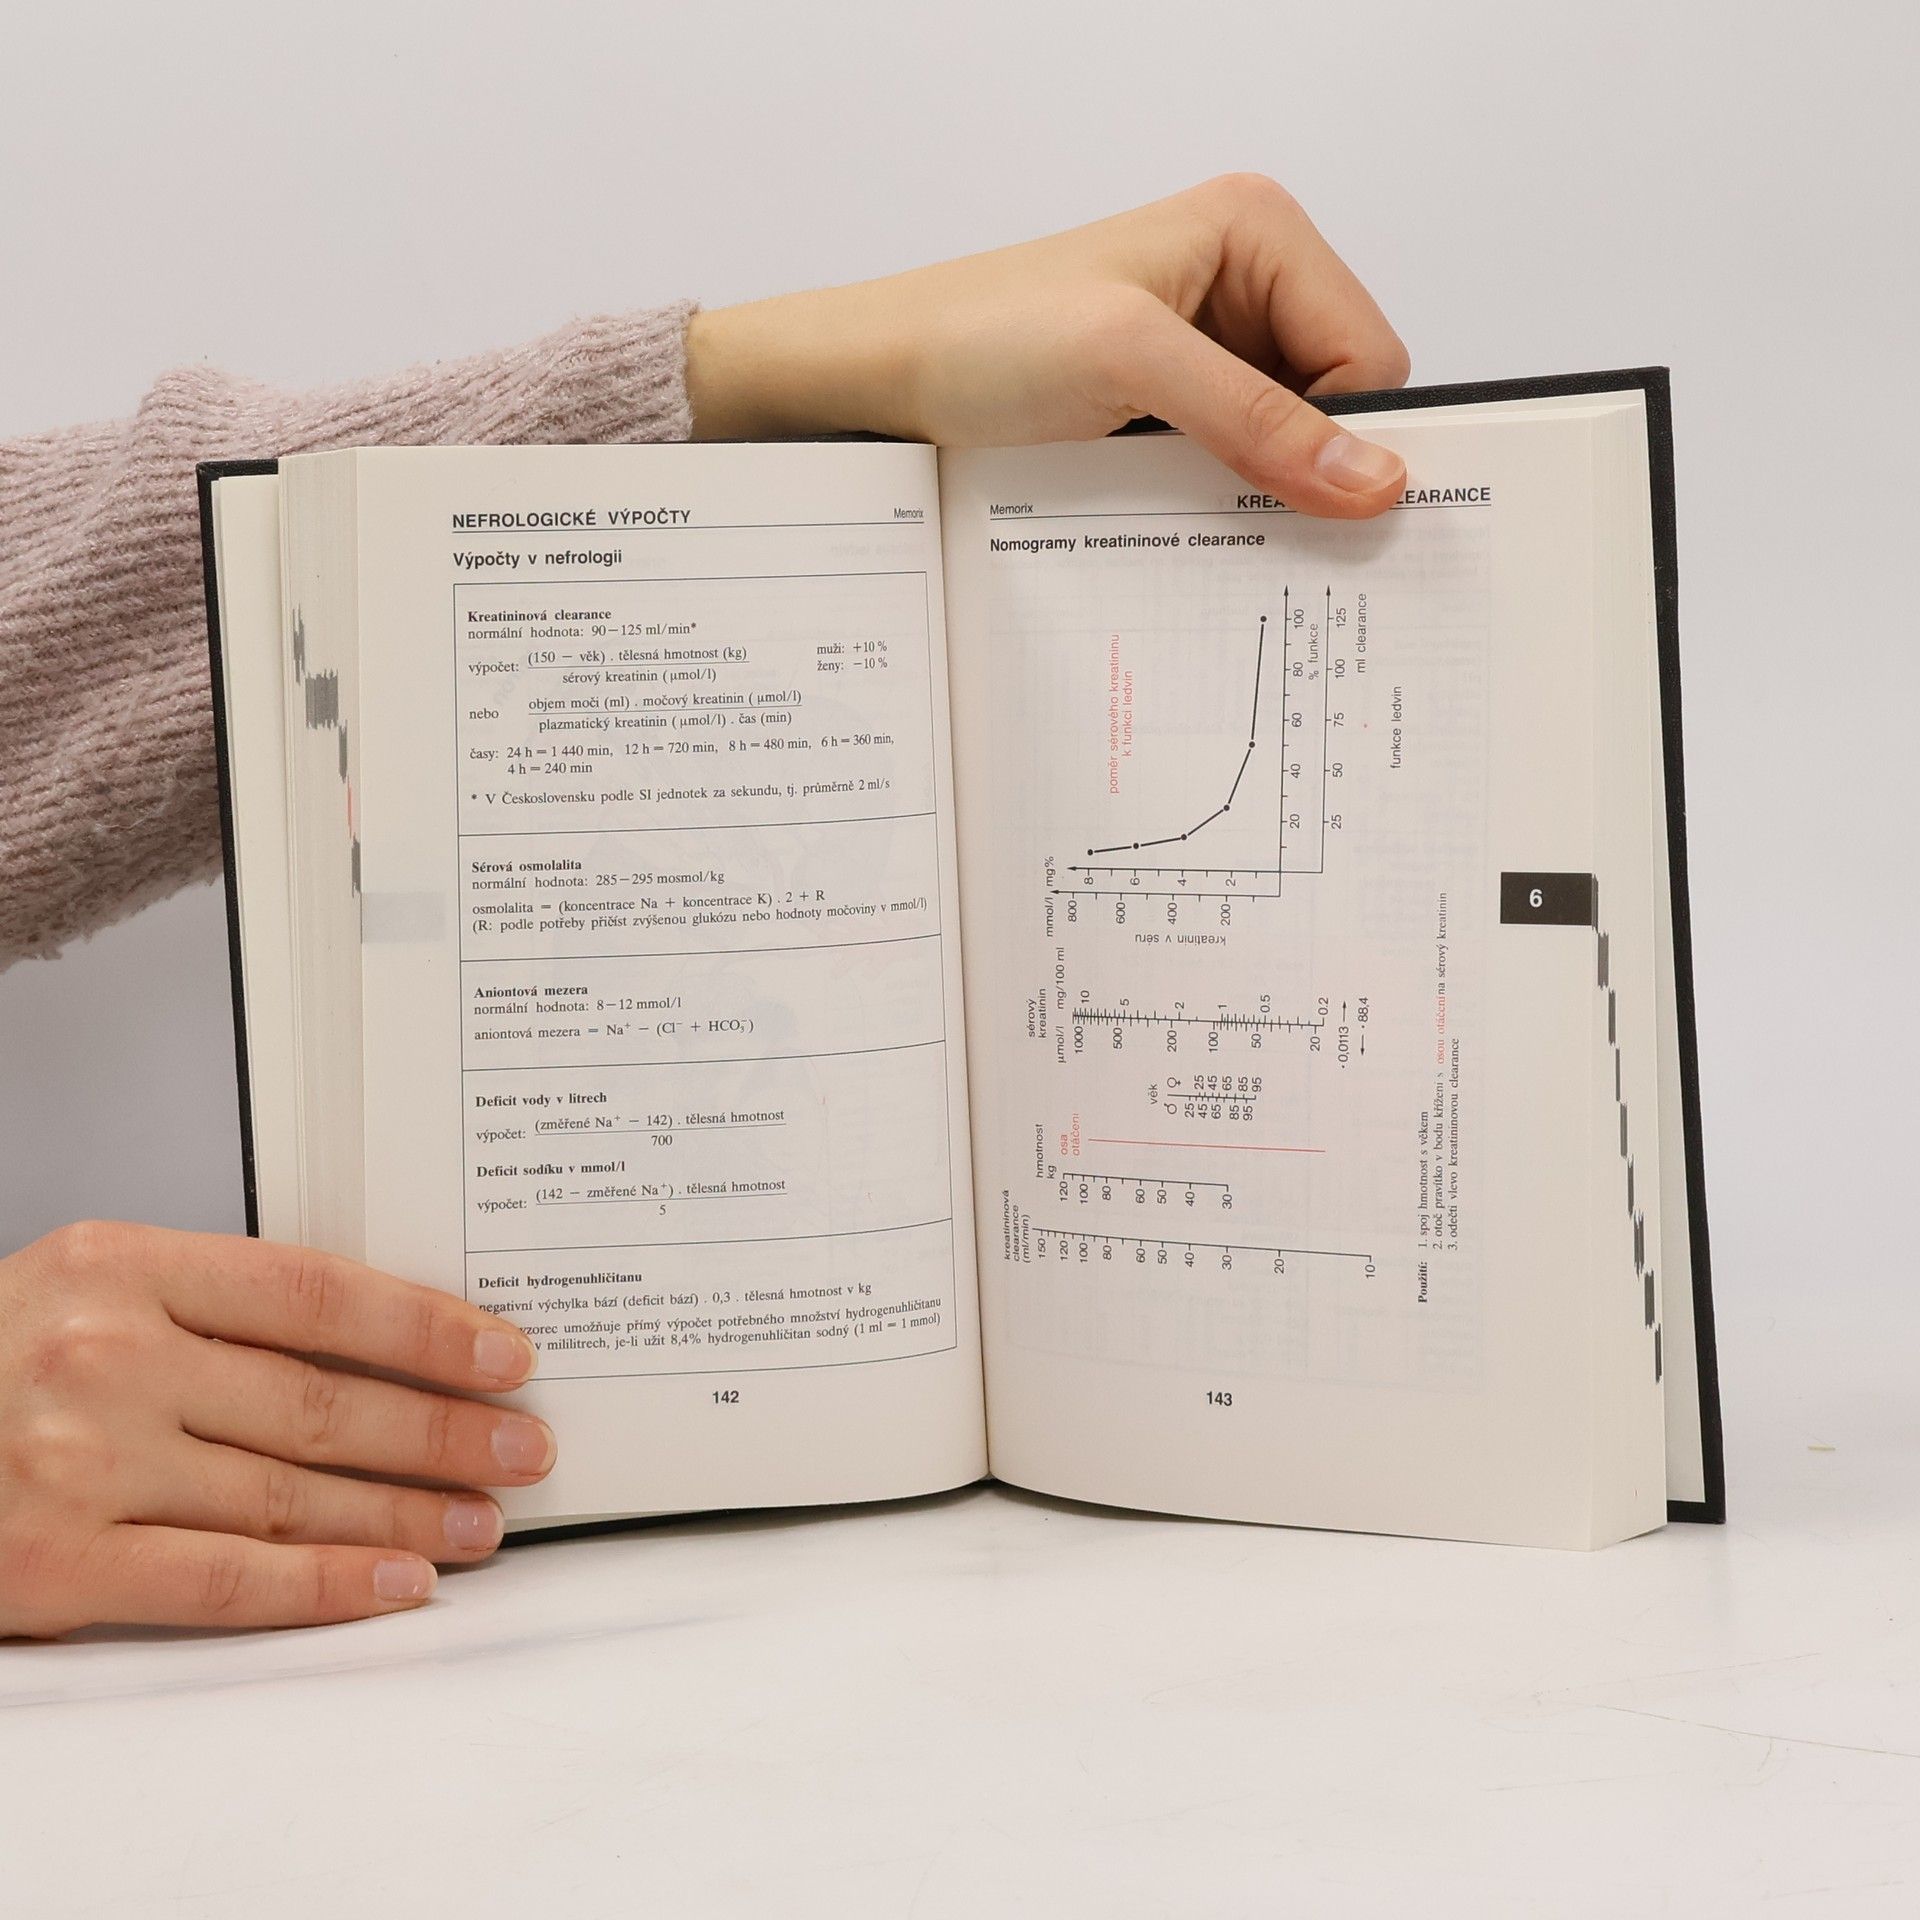 NEFROLOGICKÉ VÝPOČTY Memorix
Výpočty v nefrologii
Kreatininová clearance
normální hodnota: 90—125 ml/min*
výpočet: (150 — věk) . tělesná hmotnost (kg)
sérový kreatinin (µmol/l)
muži: +10 %
ženy: −10 %
nebo objem moči (ml) . močový kreatinin (µmol/l)
plazmatický kreatinin (µmol/l) . čas (min)
časy: 24 h = 1 440 min, 12 h = 720 min, 8 h = 480 min, 6 h = 360 min,
4 h = 240 min
* V Československu podle SI jednotek za sekundu, tj. průměrně 2 ml/s
Sérová osmolalita
normální hodnota: 285—295 mosmol/kg
osmolalita = (koncentrace Na + koncentrace K) . 2 + R
(R: podle potřeby přičíst zvýšenou glukózu nebo hodnoty močoviny v mmol/l)
Aniontová mezera
normální hodnota: 8—12 mmol/l
aniontová mezera = Na⁺ — (Cl⁻ + HCO₃⁻)
Deficit vody v litrech
výpočet: (změřené Na⁺ — 142) . tělesná hmotnost
700
Deficit sodíku v mmol/l
výpočet: (142 — změřené Na⁺) . tělesná hmotnost
5
Deficit hydrogenuhličitanu
negativní výchylka bází (deficit bází) . 0,3 . tělesná hmotnost v kg
vzorec umožňuje přímý výpočet potřebného množství hydrogenuhličitanu
v mililitrech, je-li užit 8,4% hydrogenuhličitan sodný (1 ml = 1 mmol)
142
Memorix KREA LEARANCE
Nomogramy kreatininové clearance
kreatininová
clearance
(ml/min)
150
120
100
80
60
50
40
30
20
10
hmotnost
kg
120
100
80
60
50
40
30
osa
otáčení
věk
♂ ♀
25 25
45 45
65 65
85 85
95 95
sérový
kreatinin
µmol/l mg/100 ml
1000 10
500 5
200 2
100 1
50 0.5
20 0.2
· 0,0113 →
← · 88,4
mmol/l mg%
800 8
600 6
400 4
200 2
kreatinin v séru
poměr sérového kreatininu
k funkci ledvin
20 40 60 80 100
% funkce
25 50 75 100 125
ml clearance
funkce ledvin
Použití: 1. spoj hmotnost s věkem
2. otoč pravítko v bodu křížení s osou otáčení na sérový kreatinin
3. odečti vlevo kreatininovou clearance
6
143